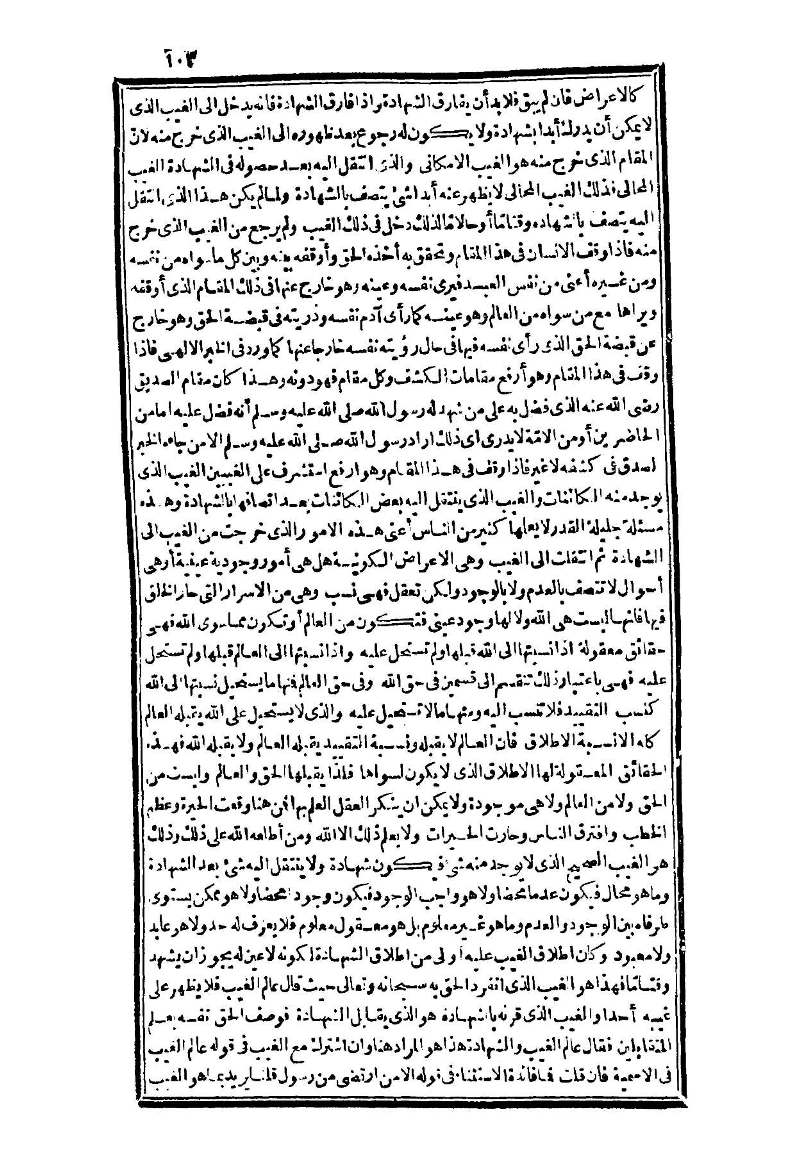 ١٠٣
كالاعراض فان لم يبق فلا بد أن يفارق الشهادة واذا فارق الشهادة فانه يدخل الى الغيب الذى
لا يمكن أن يدركه أبدا شهادة ولا يكون له رجوع بعد ظهوره الى الغيب الذى خرج منه لان
المقام الذى خرج منه هو الغيب الامكانى والذى انتقل اليه بعد حصوله فى الشهادة الغيب
المحالى فذلك الغيب المحالى لا يظهر عنه أبدا شئ يتصف بالشهادة ولما لم يكن هذا الذى انتقل
اليه يتصف بالشهادة وقتا ما أو حالا ما لذلك دخل فى ذلك الغيب ولم يرجع من الغيب الذى خرج
منه فاذا وقف الانسان فى هذا المقام وتحقق به أخذه الحق وأوقفه بينه وبين كل ما سواه من نفسه
ومن غيره أعنى من نفس العبد فيرى نفسه وعينه وهو خارج عنها فى ذلك المقام الذى أوقفه
ويراها مع من سواه من العالم وهو عينه كما رأى آدم نفسه وذريته فى قبضة الحق وهو خارج
عن قبضة الحق الذى رأى نفسه فيها فى حال رؤيته نفسه خارجا عنها كما ورد فى الخبر الالهى فاذا
وقف فى هذا المقام وهو أرفع مقامات الكشف وكل مقام فهو دونه وهذا كان مقام الصديق
رضى الله عنه الذى فضل به على من شهد له رسول الله صلى الله عليه وسلم أنه فضل عليه اما من
الحاضرين أو من الامة لا يدرى اى ذلك اراد رسول الله صلى الله عليه وسلم الا من جاءه الخبر
الصدق فى كشفه لا غير فاذا وقف فى هذا المقام وهو ارفع استشرف على الغيبين الغيب الذى
يوجد منه الكائنات والغيب الذى ينتقل اليه بعض الكائنات بعد اتصافها بالشهادة وهذه
مسئلة جليلة القدر لا يعلها كثير من الناس أعنى هذه الامور الذى خرجت من الغيب الى
الشهادة ثم انتقلت الى الغيب وهى الاعراض الكونية هل هى أمور وجودية عينية أو هى
أحوال لا تتصف بالعدم ولا بالوجود ولكن تعقل فهى نسب وهى من الاسرار التى حار الخلق
فيها فانها ليست هى الله ولا لها وجود عينى فتكون من العالم أو تكون مما سوى الله فهى
حقائق معقولة اذا نسبتها الى الله قبلها ولم تستحل عليه واذا نسبتها الى العالم قبلها ولم تستحل
عليه فهى باعتبار ذلك تنقسم الى قسمين فى حق الله وفى حق العالم فنها ما يستحيل نسبتها الى الله
كنسب التقييد فلا تنسب اليه ومنها ما لا تستحيل عليه والذى لا يستحيل على الله يقبله العالم
كله الا نسبة الاطلاق فان العالم لا يقبله ونسبة التقييد يقبله العالم ولا يقبله الله فهذه
الحقائق المعقولة لها الاطلاق الذى لا يكون لسواها فلذا يقبلها الحق والعالم وليست من
الحق ولا من العالم ولا هى موجودة ولا يمكن ان ينكر العقل العلم بها فمن هنا وقعت الحيرة وعظم
الخطب وافترق الناس وحارت الحيرات ولا يعلم ذلك الا الله ومن أطلعه الله على ذلك وذلك
هو الغيب الصحيح الذى لا يوجد منه شئ فيكون شهادة ولا ينتقل اليه شئ بعد الشهادة
وما هو محال فيكون عدما محضا ولا هو واجب الوجود فيكون وجودا محضا ولا هو ممكن يستوى
طرفاه بين الوجود والعدم وما هو غير معلوم بل هو معقول معلوم فلا يعرف له حد ولا هو عابد
ولا معبود وكان اطلاق الغيب عليه أولى من اطلاق الشهادة لكونه لا عين له يجوز ان يشهد
وقتا ما فهذا هو الغيب الذى انفرد الحق به سبحانه وتعالى حيث قال عالم الغيب فلا يظهر على
غيبه أحدا والغيب الذى قرنه بالشهادة هو الذى يقابل الشهادة فوصف الحق نفسه بعلم
المتقابلين فقال عالم الغيب والشهادة هذا هو المراد هنا وان اشترك مع الغيب فى قوله عالم الغيب
فى الاسمية فان قلت فما فائدة الاستثناء فى قوله الا من ارتضى من رسول قلنا يريد بما هو الغيب